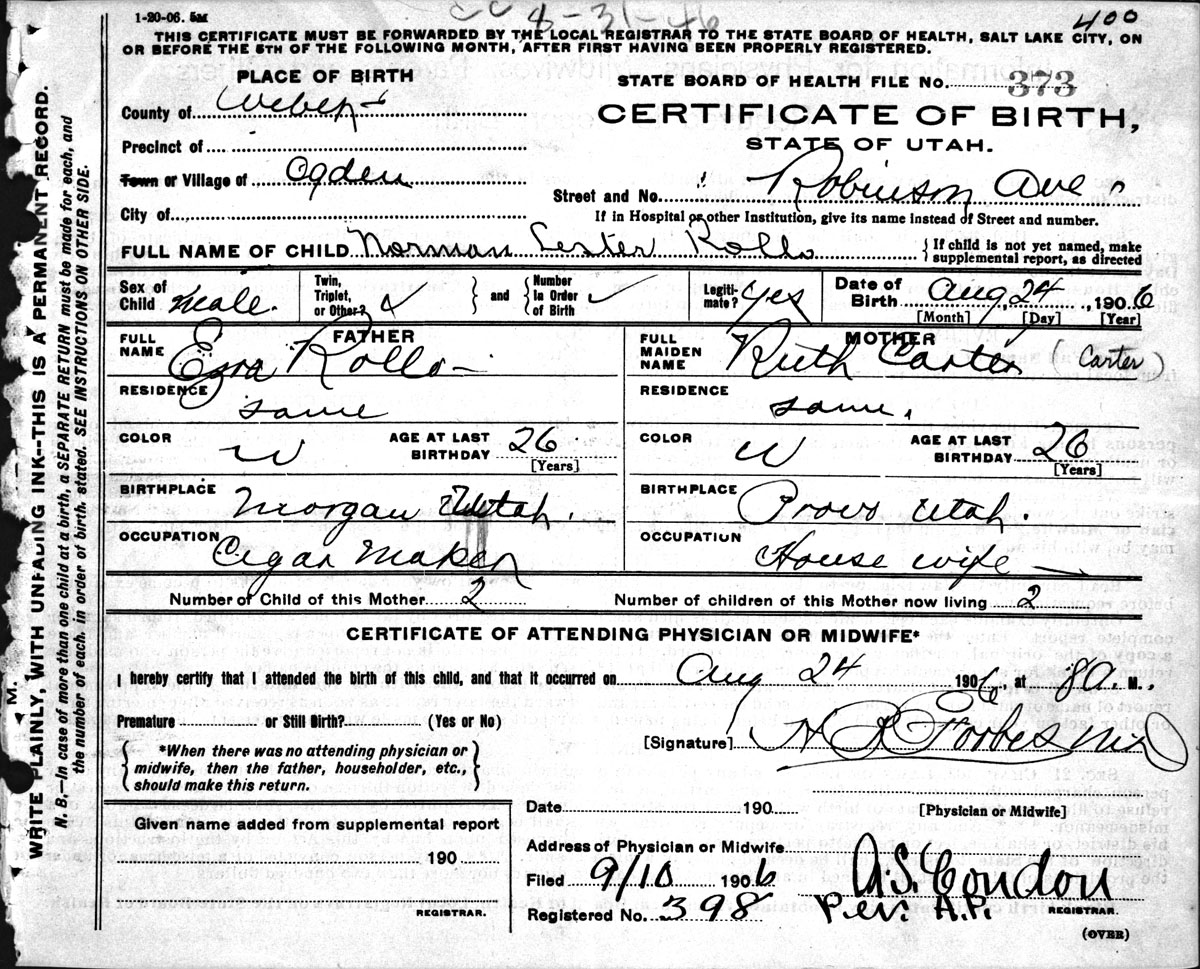 1-20-06. 5M
CC 8-31-46
400
THIS CERTIFICATE MUST BE FORWARDED BY THE LOCAL REGISTRAR TO THE STATE BOARD OF HEALTH, SALT LAKE CITY, ON
OR BEFORE THE 5TH OF THE FOLLOWING MONTH, AFTER FIRST HAVING BEEN PROPERLY REGISTERED.
PLACE OF BIRTH
STATE BOARD OF HEALTH FILE No. 373
County of Weber
CERTIFICATE OF BIRTH,
STATE OF UTAH.
Precinct of
Town or Village of Ogden
Street and No. Robinson Ave
City of
If in Hospital or other Institution, give its name instead of Street and number.
FULL NAME OF CHILD Norman Lester Rollo { If child is not yet named, make supplemental report, as directed
Sex of Child Male. Twin, Triplet, or Other? } and { Number In Order of Birth Legiti-mate? Yes Date of Birth Aug, 24, 1906
[Month] [Day] [Year]
FATHER
FULL NAME Ezra Rollo
MOTHER
FULL MAIDEN NAME Ruth Carter (Carter)
RESIDENCE same
RESIDENCE same.
COLOR W AGE AT LAST BIRTHDAY 26 [Years]
COLOR W AGE AT LAST BIRTHDAY 26 [Years]
BIRTHPLACE Morgan Utah.
BIRTHPLACE Provo Utah.
OCCUPATION Cigar Maker
OCCUPATION House wife
Number of Child of this Mother 2 Number of children of this Mother now living 2
CERTIFICATE OF ATTENDING PHYSICIAN OR MIDWIFE*
I hereby certify that I attended the birth of this child, and that it occurred on Aug 24 1906, at 8 A. M.
Premature or Still Birth? (Yes or No)
[Signature] Forbes MD
{ *When there was no attending physician or midwife, then the father, householder, etc., should make this return. }
Date 190 [Physician or Midwife]
Given name added from supplemental report
190
REGISTRAR.
Address of Physician or Midwife.
Filed 9/10 1906 A.S. Condon
Registered No. 398 Per. A.P. REGISTRAR.
(OVER)
WRITE PLAINLY, WITH UNFADING INK--THIS IS A PERMANENT RECORD.
N. B.—In case of more than one child at a birth, a SEPARATE RETURN must be made for each, and
the number of each, in order of birth, stated. SEE INSTRUCTIONS ON OTHER SIDE.